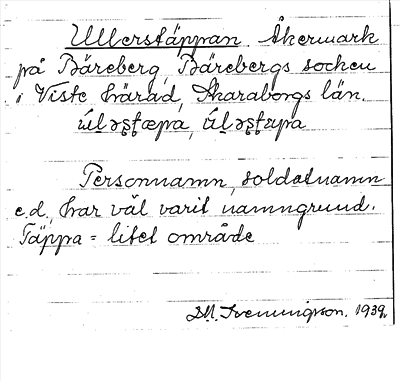 Ullerstäppan Åkermark
på Bäreberg, Bärebergs socken
i Viste härad, Skaraborgs län.
Personnamn, soldatnamn
e.d., har väl varit namngrund.
Täppa = litet område
1939.